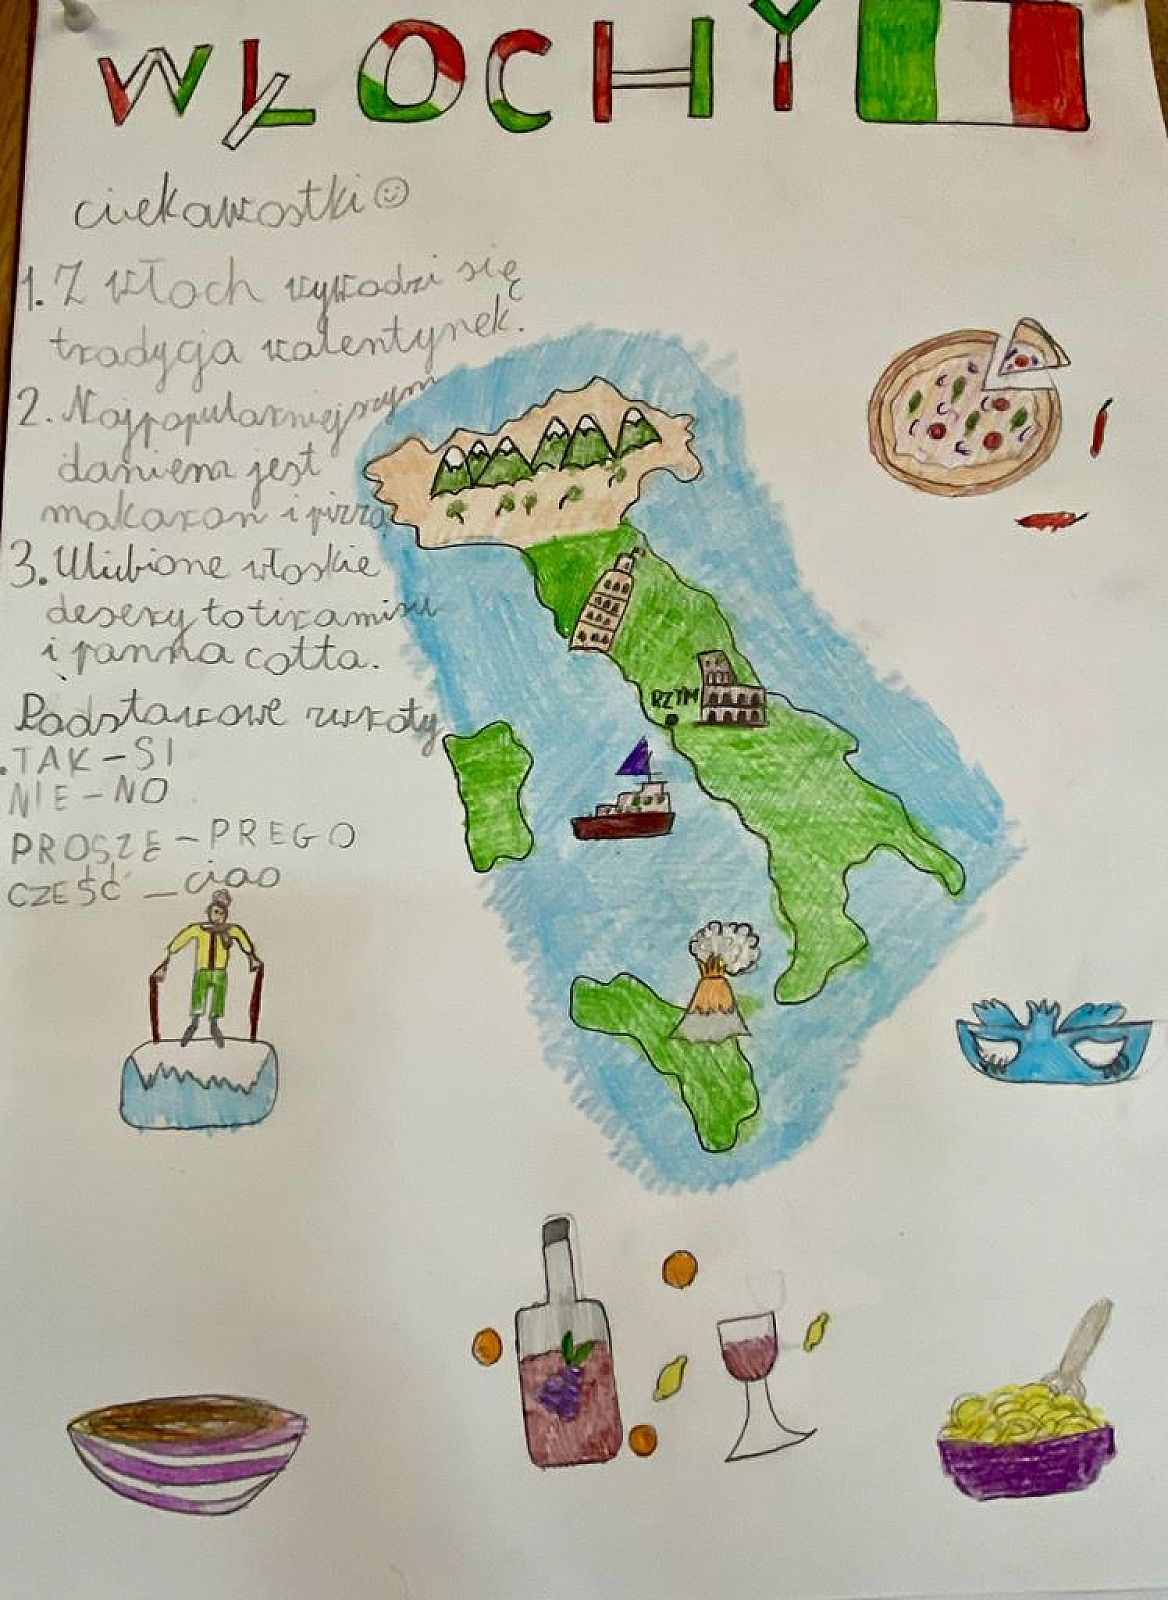 WŁOCHY
ciekawostki
1. Z włoch wywodzi się
tradycja walentynek.
2. Najpopularniejszym
daniem jest
makaron i pizza
3. Ulubione włoskie
desery to tiramisu
i panna cotta.
Podstawowe zwroty
TAK-SI
NIE-NO
PROSZĘ-PREGO
CZEŚĆ-ciao
RZYM